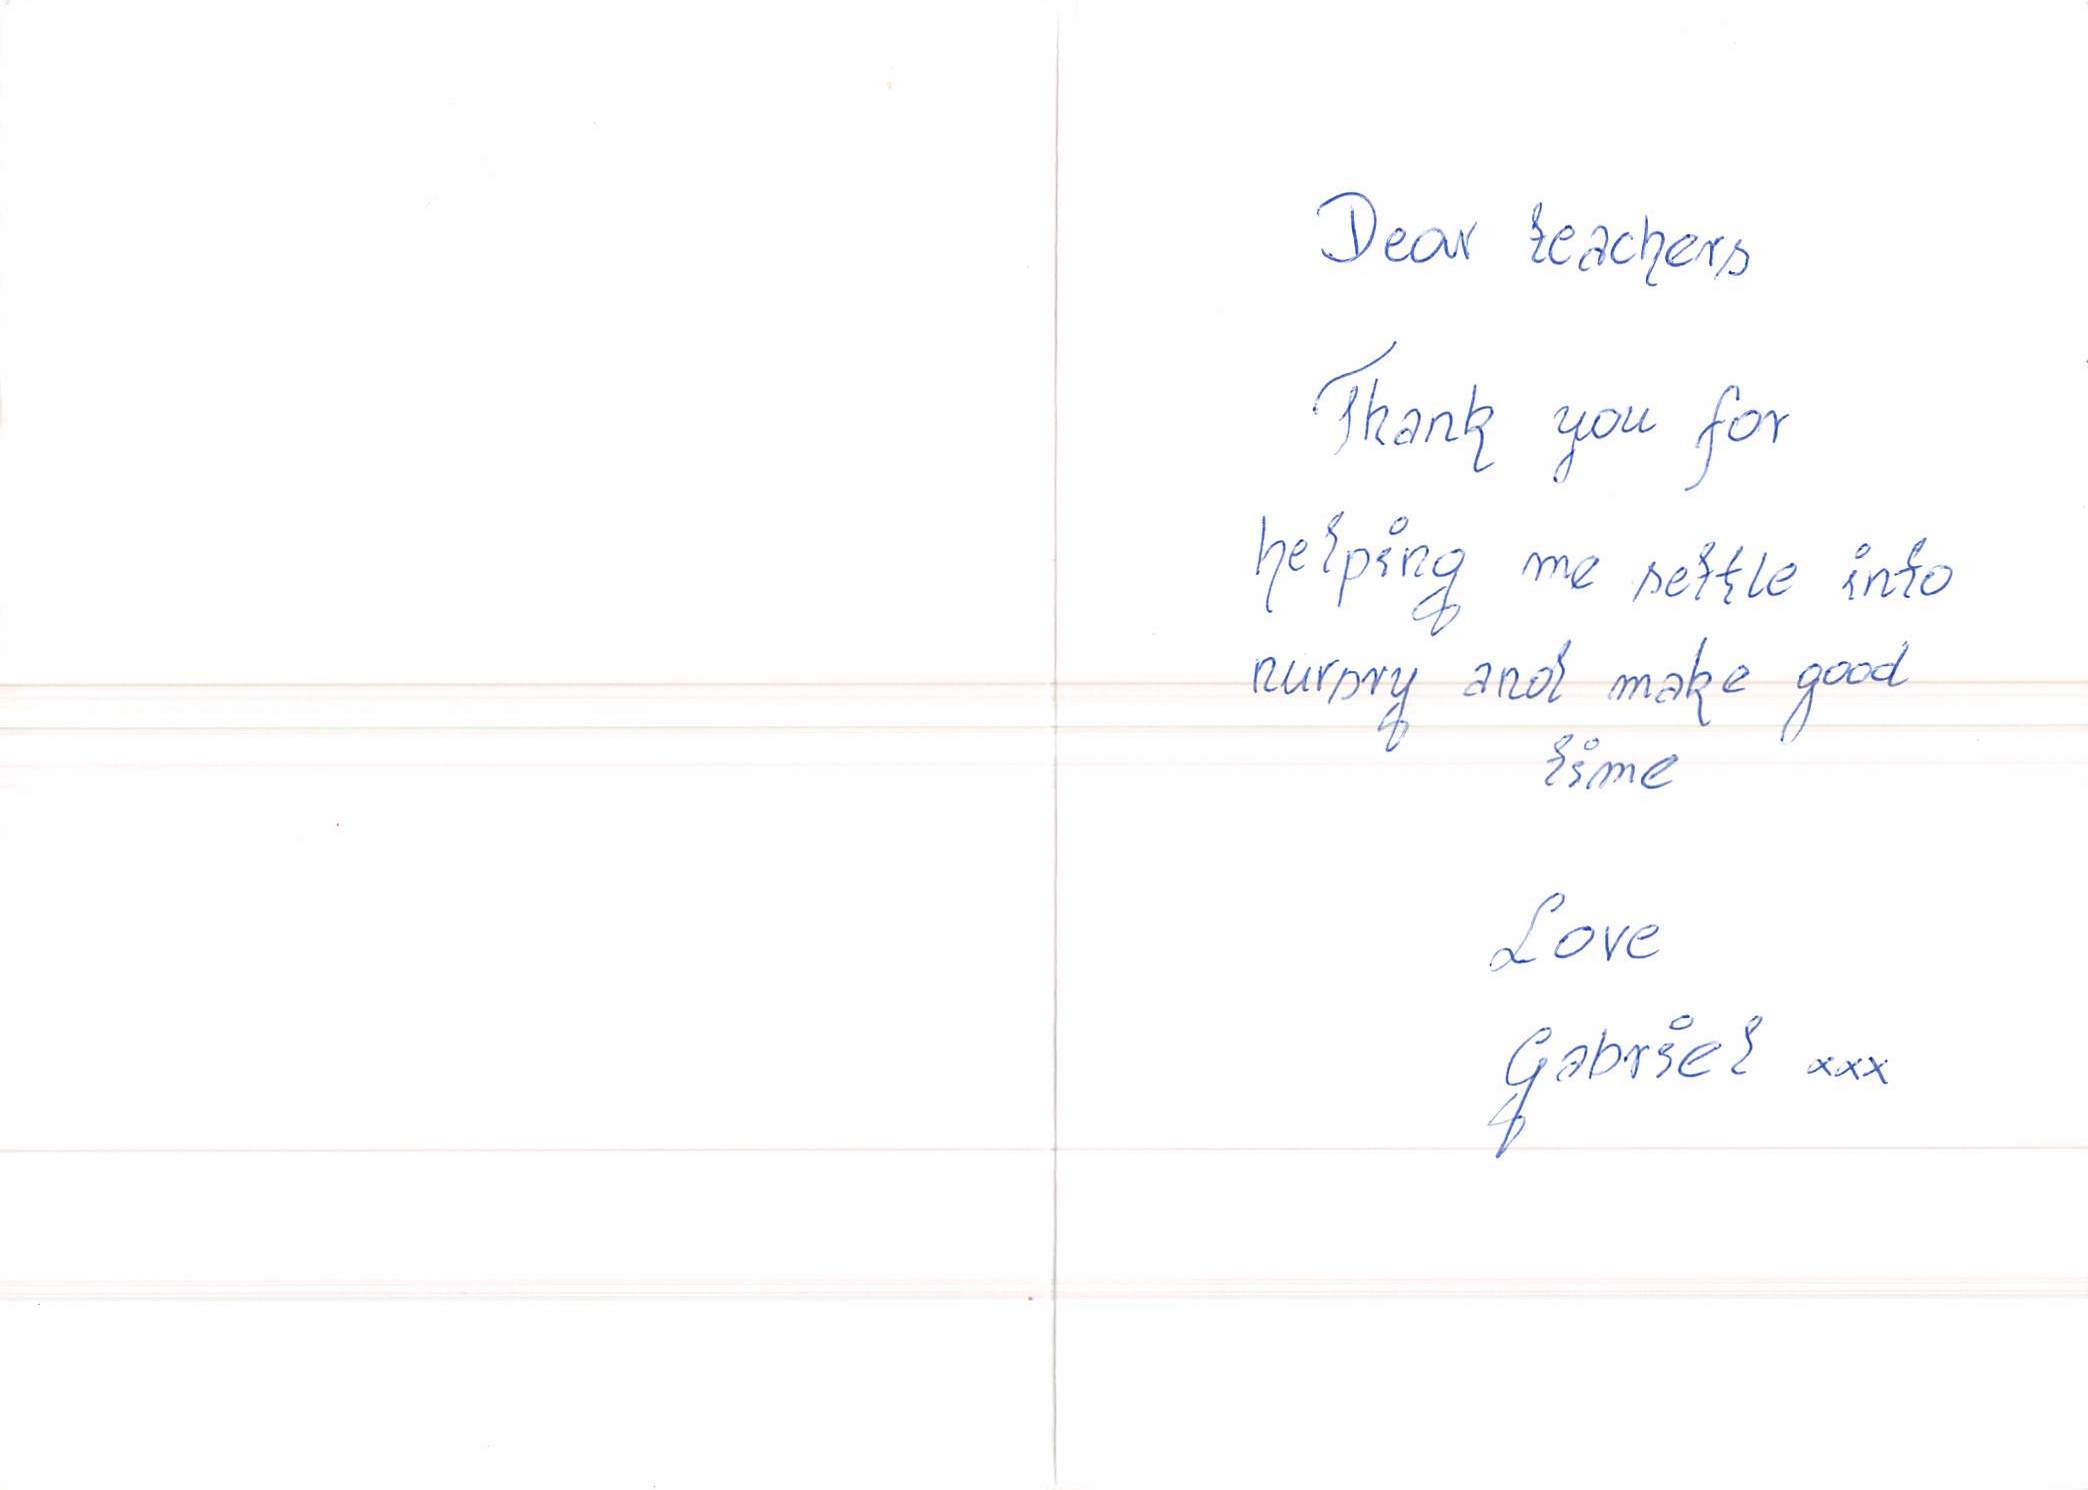 Dear teachers
Thank you for
helping me settle into
nursry and make good
time
Love
Gabriel xxx